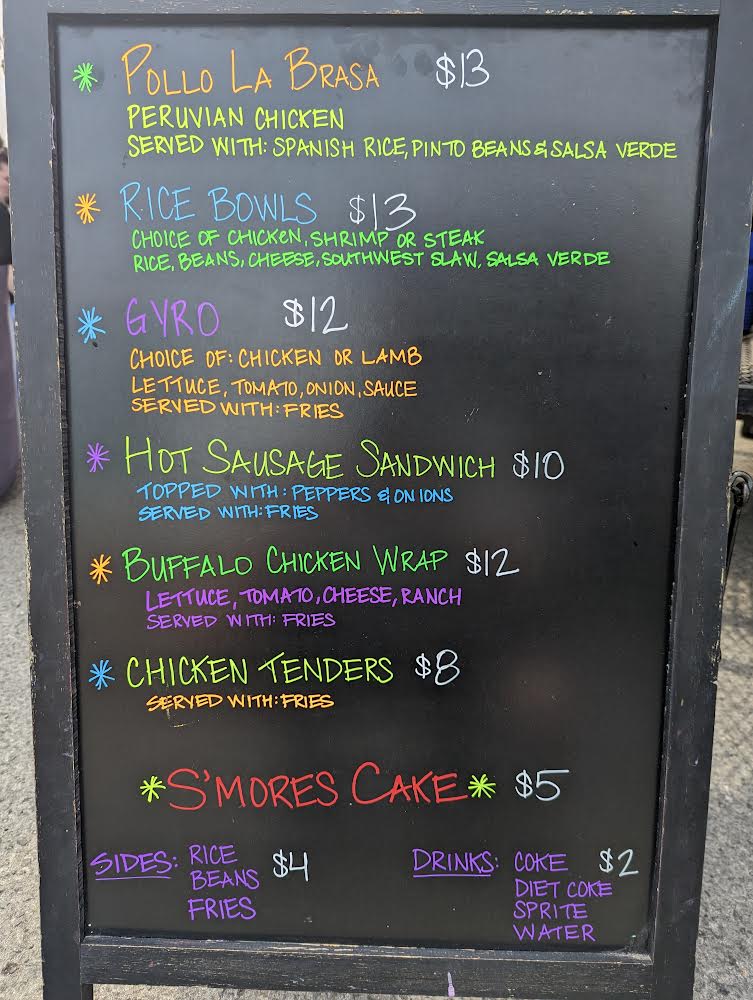 * POLLO LA BRASA $13
PERUVIAN CHICKEN
SERVED WITH: SPANISH RICE, PINTO BEANS & SALSA VERDE
* RICE BOWLS $13
CHOICE OF CHICKEN, SHRIMP OR STEAK
RICE, BEANS, CHEESE, SOUTHWEST SLAW, SALSA VERDE
* GYRO $12
CHOICE OF: CHICKEN OR LAMB
LETTUCE, TOMATO, ONION, SAUCE
SERVED WITH: FRIES
* HOT SAUSAGE SANDWICH $10
TOPPED WITH: PEPPERS & ONIONS
SERVED WITH: FRIES
* BUFFALO CHICKEN WRAP $12
LETTUCE, TOMATO, CHEESE, RANCH
SERVED WITH: FRIES
* CHICKEN TENDERS $8
SERVED WITH: FRIES
* S'MORES CAKE * $5
SIDES: RICE $4
BEANS
FRIES
DRINKS: COKE $2
DIET COKE
SPRITE
WATER